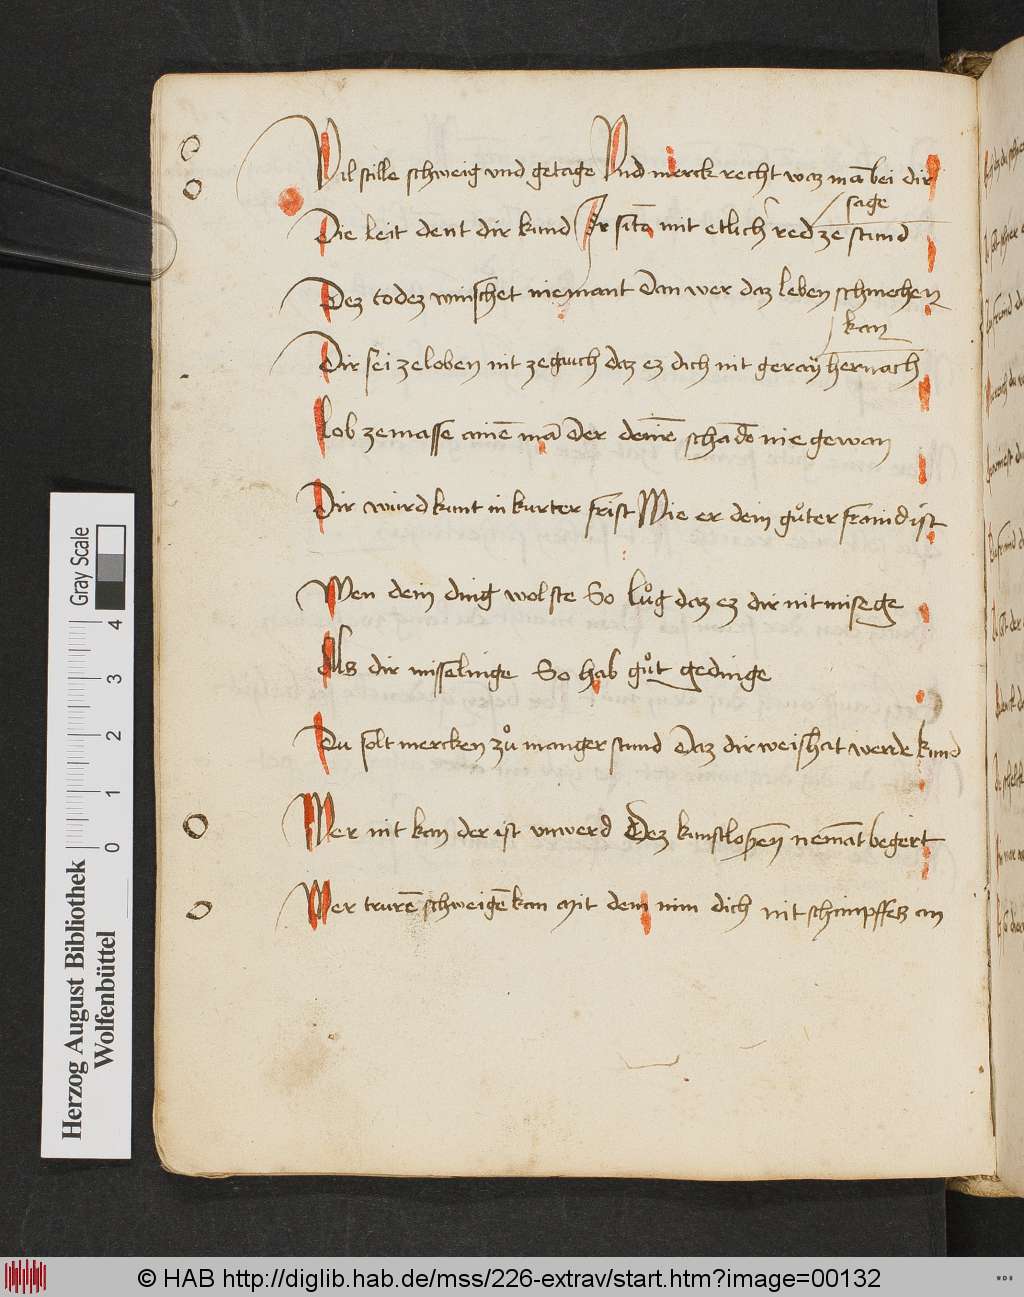 Vil stille schweig vnd getage Vnd merck recht waz mā bei dir
sage
Die leit dent dir kund Ir sitō mit etlich red ze stund
Dez todez winschet niemant Dan wer daz leben schmechen
kan
Dir sei ze loben nit ze gauch daz ez dich nit geray hernach
Lob ze masse ainē mā Der denē schadō nie gewan
Dir würd kunt in kurter frist Wie er dein gůter fraind ist
Wen dein ding wol ste So lůg daz ez dir nit misege
Als dir misselinge So hab gůt gedinge
Du solt mercken zů manger stund Daz dir weishait werde kund
Wer nit kan der ist vnwerd Dez kunstlosen nemāt begert
Wer trurē schweigē kan Mit dem nim dich nit schimpffes an
Herzog August Bibliothek
Wolfenbüttel
Gray Scale
0 1 2 3 4
© HAB http://diglib.hab.de/mss/226-extrav/start.htm?image=00132